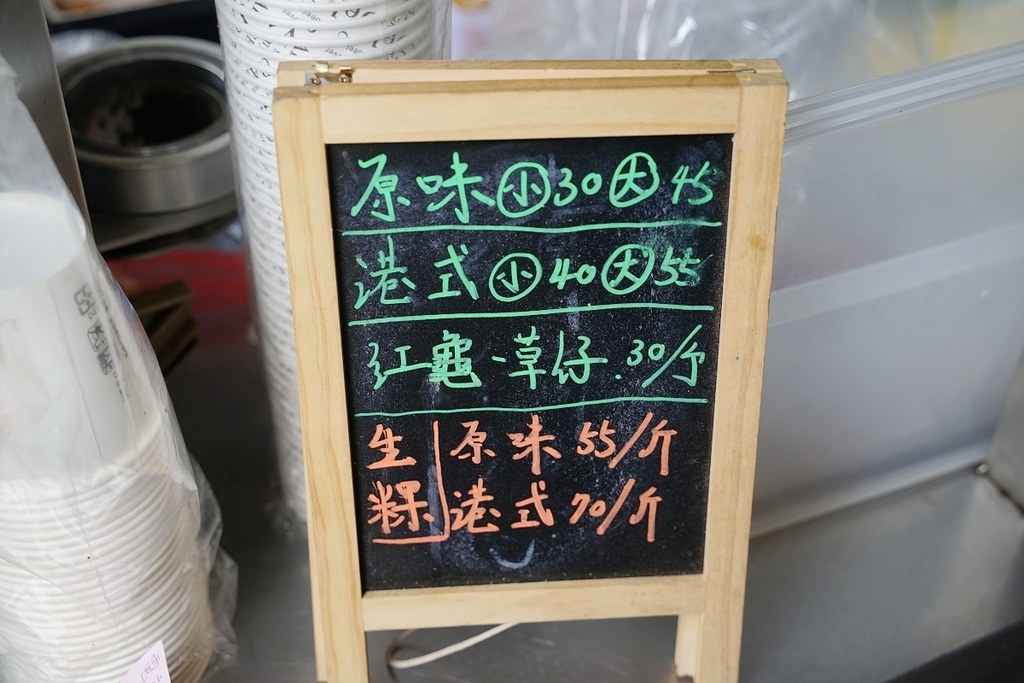 原味㊙小30大45
港式小40大55
红龜·草仔.30/斤
生粿
原味55/斤
港式70/斤